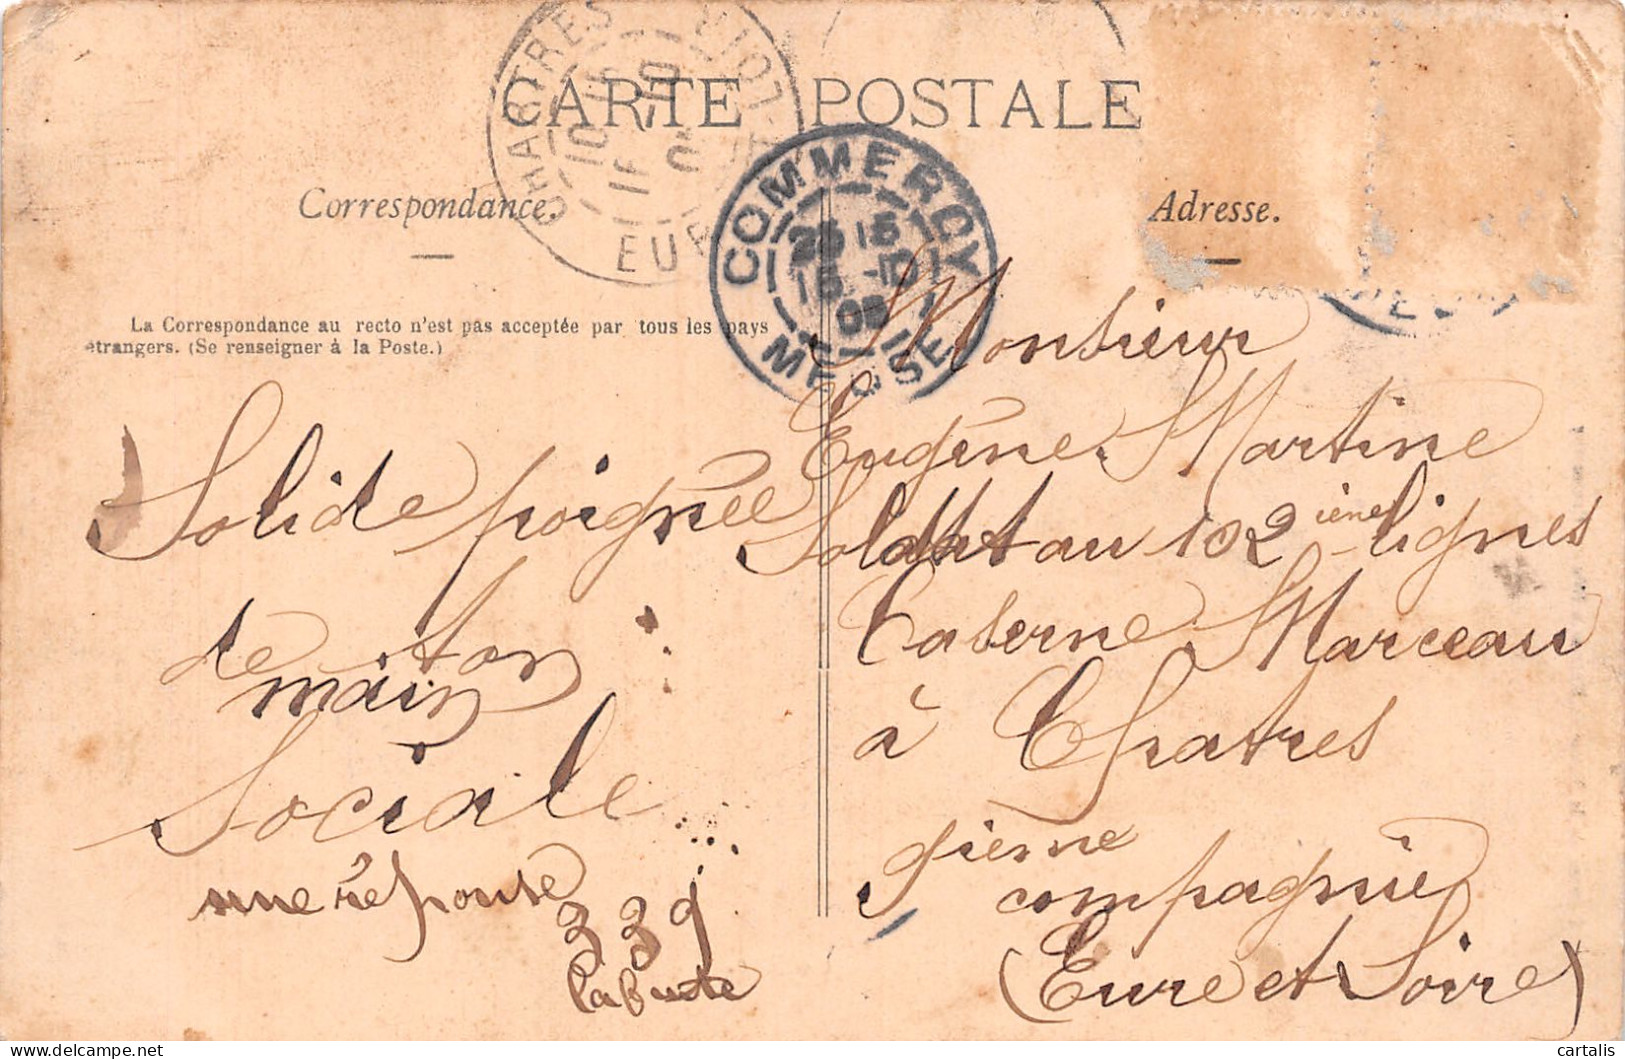 CARTE POSTALE
CHARTRES
EURE
LOIR
COMMERCY
MEUSE
Correspondance.
Adresse.
La Correspondance au recto n'est pas acceptée par tous les pays
étrangers. (Se renseigner à la Poste.)
Solide poignée
de ton
main
Sociale
une réponse
339
Monsieur
Eugène Martine
Soldat au 102 ième lignes
Caserne Marceau
à Chatres
9ième
compagnie
(Eure et Loire)
cartalis